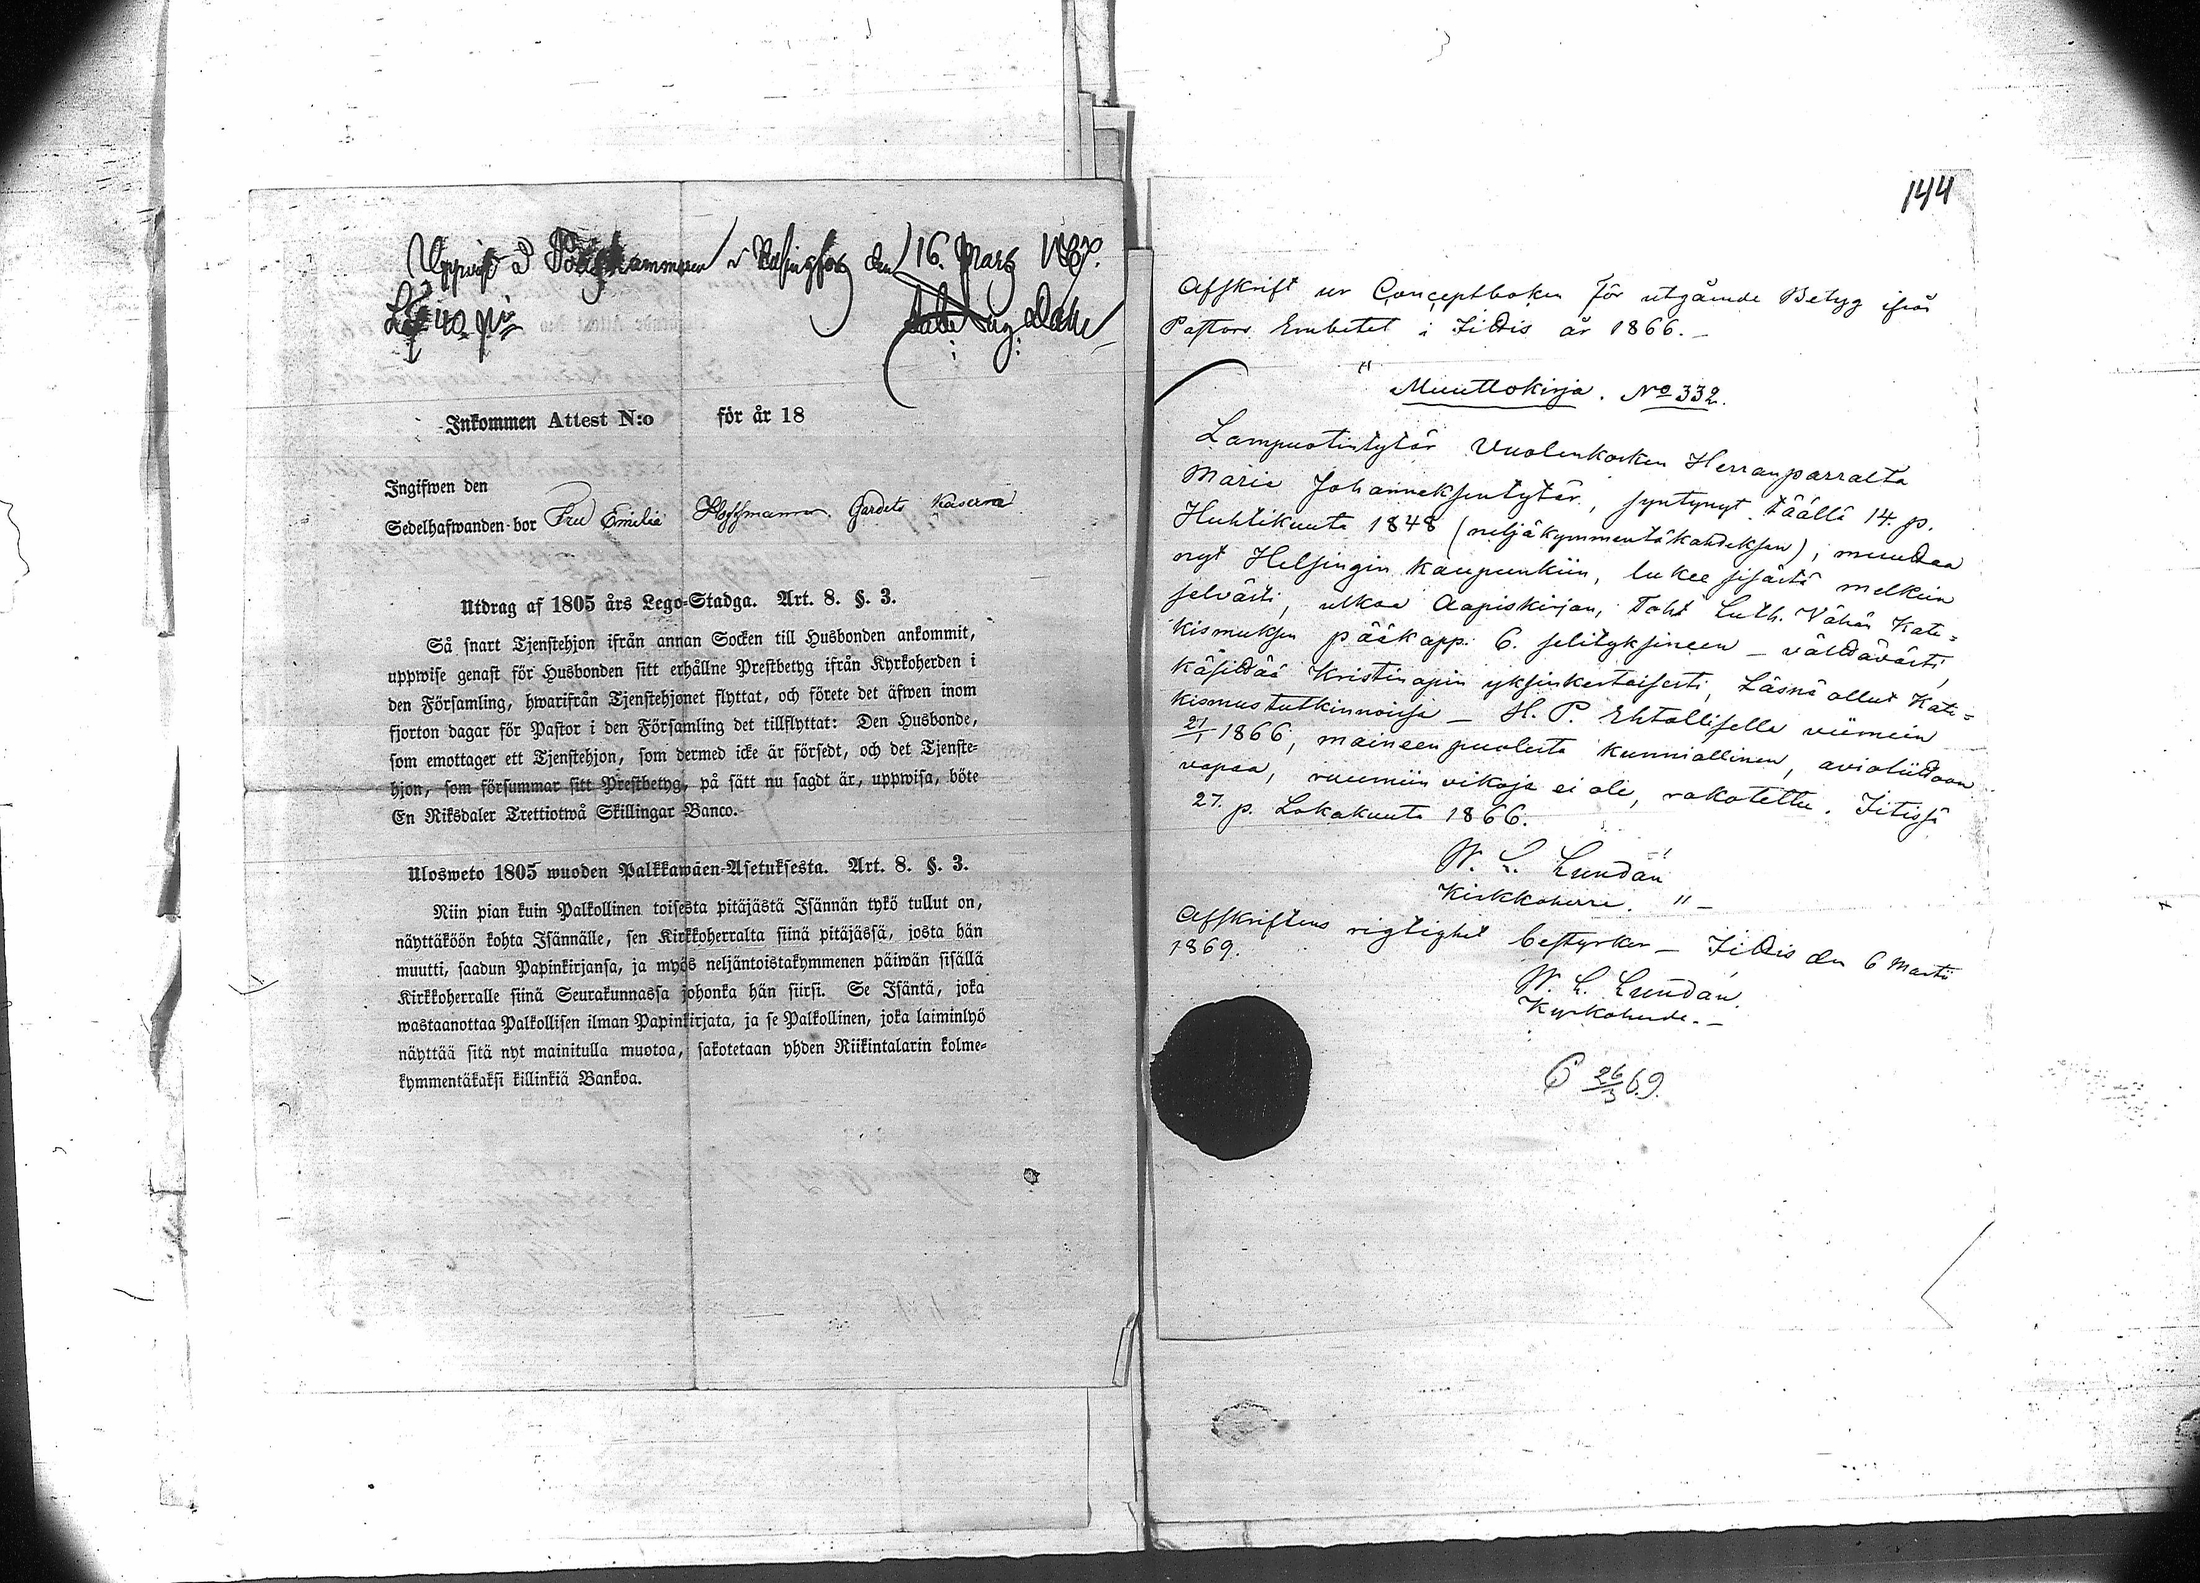 Uppvist å Poliskammaren i Helsingfors den 16. Mars 1867.
Lös 40 p:i
Inkommen Attest N:o för år 18
Ingifwen den
Sedelhafwanden bor Fru Emilie Hoffmann. Gardets Kaserne
Utdrag af 1805 års Lego-Stadga. Art. 8. §. 3.
Så snart Tjenstehjon ifrån annan Socken till Husbonden ankommit,
uppwise genast för Husbonden sitt erhållne Prestbetyg ifrån Kyrkoherden i
den Församling, hwarifrån Tjenstehjonet flyttat, och förete det äfwen inom
fjorton dagar för Pastor i den Församling det tillflyttat: Den Husbonde,
som emottager ett Tjenstehjon, som dermed icke är försedt, och det Tjenste-
hjon, som försummar sitt Prestbetyg, på sätt nu sagdt är, uppwisa, böte
En Riksdaler Trettiotwå Skillingar Banco.
Ulosweto 1805 wuoden Palkkawäen-Asetuksesta. Art. 8. §. 3.
Niin pian kuin Palkollinen toisesta pitäjästä Isännän tykö tullut on,
näyttäköön kohta Isännälle, sen Kirkkoherralta siinä pitäjässä, josta hän
muutti, saadun Papinkirjansa, ja myös neljäntoistakymmenen päiwän sisällä
Kirkkoherralle siinä Seurakunnassa johonka hän siirsi. Se Isäntä, joka
wastaanottaa Palkollisen ilman Papinkirjata, ja se Palkollinen, joka laiminlyö
näyttää sitä nyt mainitulla muotoa, sakotetaan yhden Riikintalarin kolme-
kymmentäkaksi killinkiä Bankoa.
144
Afskrift ur Conceptboken för utgående Betyg ifrån
Pastors Embetet i Jittis år 1866. –
" Muuttokirja. No 332.
Lampuotintytär Vuolenkosken Herranparralta
Maria Johanneksentytär, syntynyt täällä 14. p.
Huhtikuuta 1848 (neljäkymmentäkahdeksan), muuttaa
nyt Helsingin kaupunkiin, lukee sisästä melkein
selvästi, ulkoa Aapiskirjan, Toht Luth. Vähän Kate=
kismuksen pääkapp. 6. selityksineen – välttävästi,
käsittää Kristinopin yksinkertaisesti, Läsnä ollut Kate=
kismustutkinnoissa – H. P. Ehtollisella viimein
21/1 1866, maineen puolesta kunniallinen, avioliittoon
vapaa, ruumiin vikoja ei ole, rokotettu. Jitissä
27. p. Lokakuuta 1866.
W. L. Lundán
Kirkkoherra. " –
Afskriftens rigtighet bestyrker – Jittis den 6 Martii
1869.
W. L. Lundán.
Kyrkoherde. –
26/3 69.